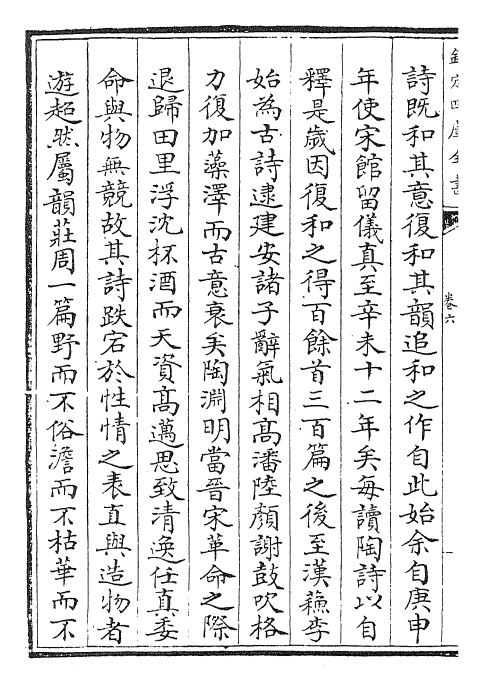 欽定四庫全書
卷六
詩既和其意復和其韻追和之作自此始余自庚申
年使宋館留儀真至辛未十二年矣每讀陶詩以自
釋是歳因復和之得百餘首三百篇之後至漢蘓李
始為古詩逮建安諸子辭氣相髙潘陸顔謝鼓吹格
力復加藻澤而古意衰矣陶淵明當晉宋革命之際
退歸田里浮沈杯酒而天資髙邁思致清逸任真委
命與物無競故其詩跌宕於性情之表直與造物者
遊超然屬韻莊周一篇野而不俗澹而不枯華而不